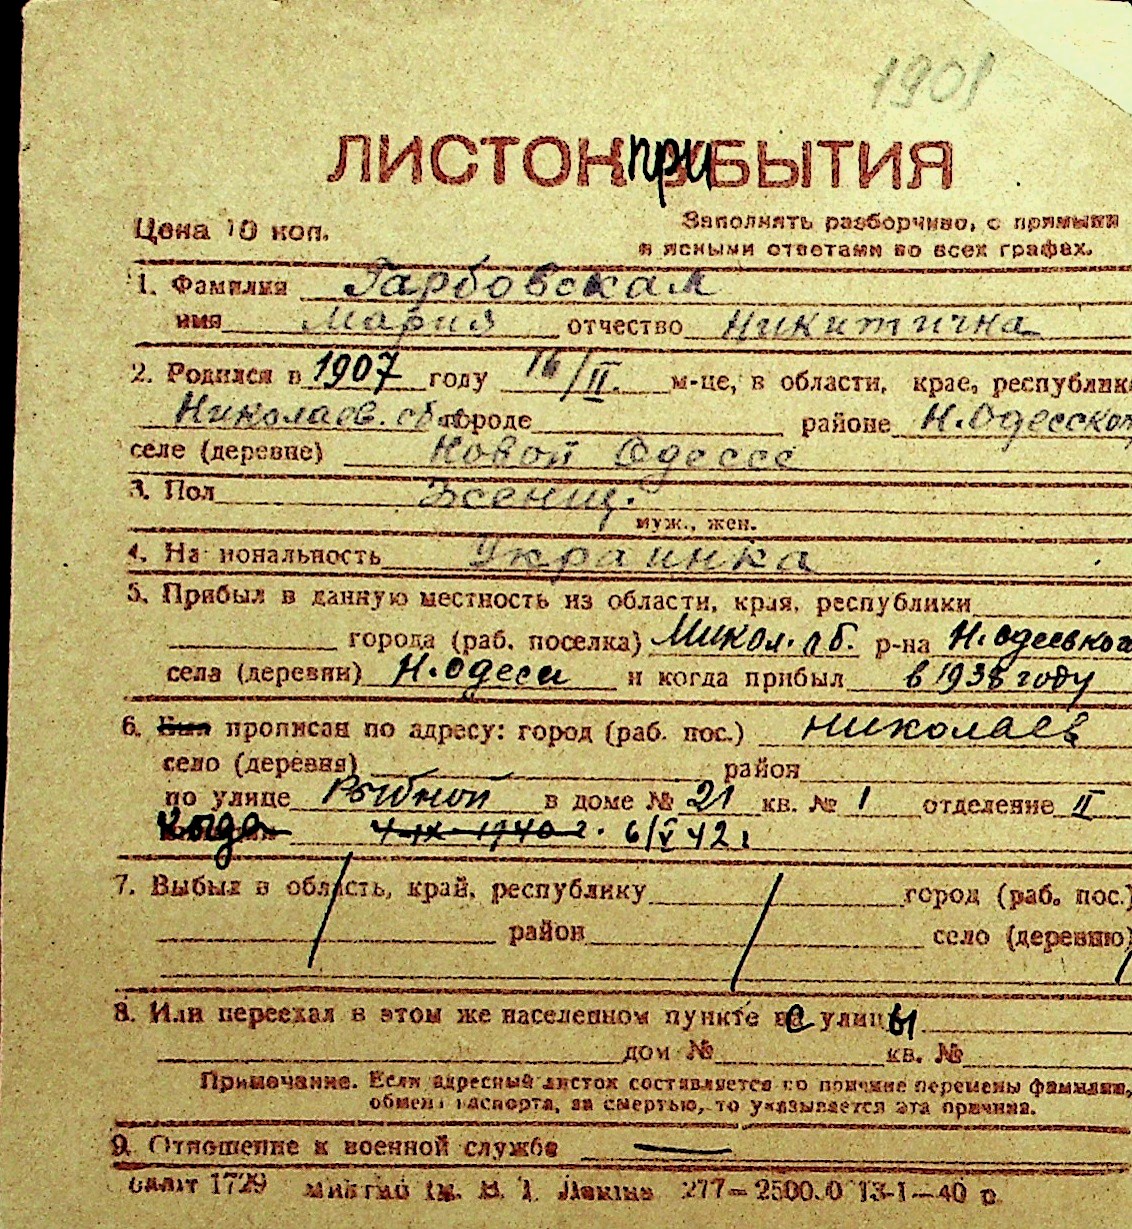 1908
ЛИСТОК при БЫТИЯ
Цена 10 коп.
Заполнять разборчиво, с прямыми
и ясными ответами во всех графах.
1. Фамилия Гарбовская
имя Мария отчество Никитична
2. Родился в 1907 году 16/II. м-це, в области, крае, республике
Николаев. об городе районе Н.Одесском
селе (деревне) Новой Одессе
3. Пол Женщ.
муж., жен.
4. Национальность Украинка
5. Прибыл в данную местность из области, края, республики
города (раб. поселка) Микол. об. р-на Н.одесского
села (деревни) Н.одеси и когда прибыл в 1938 году
6. Был прописан по адресу: город (раб. пос.) Николаев
село (деревня) район
по улице Рыбной в доме № 21 кв. № 1 отделение II
когда 4-IX-1940 г. 6/V 42 г
7. Выбыл в область, край, республику город (раб. пос.)
район село (деревню)
8. Или переехал в этом же населенном пункте с улицы
дом № кв. №
Примечание. Если адресный листок составляется по причине перемены фамилии,
обмена паспорта, за смертью, то указывается эта причина.
9. Отношение к военной службе —
1729 277—2500.0 13-I—40 р.